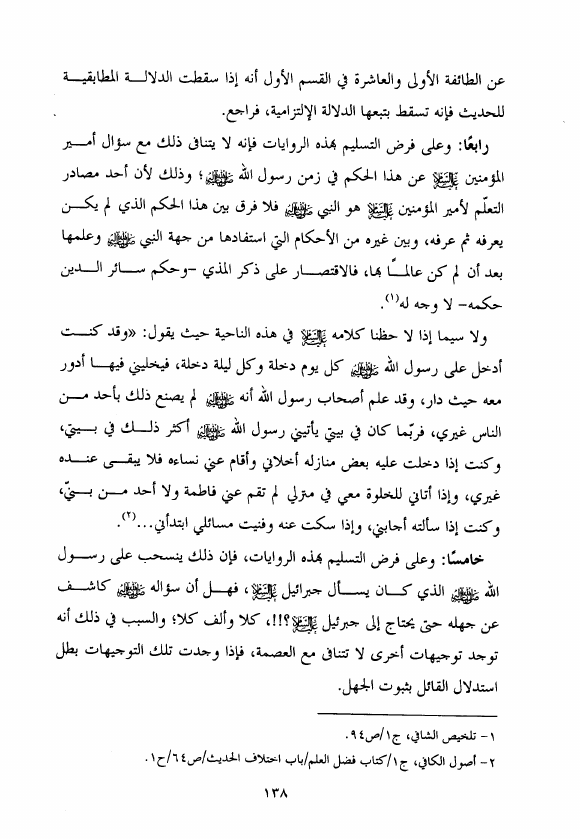 عن الطائفة الأولى والعاشرة في القسم الأول أنه إذا سقطت الدلالة المطابقية
للحديث فإنه تسقط بتبعها الدلالة الإلتزامية، فراجع.
رابعًا: وعلى فرض التسليم بهذه الروايات فإنه لا يتنافى ذلك مع سؤال أمير
المؤمنين عليه السلام عن هذا الحكم في زمن رسول الله ﷺ؛ وذلك لأن أحد مصادر
التعلّم لأمير المؤمنين عليه السلام هو النبي ﷺ فلا فرق بين هذا الحكم الذي لم يكن
يعرفه ثم عرفه، وبين غيره من الأحكام التي استفادها من جهة النبي ﷺ وعلمها
بعد أن لم كن عالمًا بها، فالاقتصار على ذكر المذي -وحكم سائر الدين
حكمه- لا وجه له(١).
ولا سيما إذا لا حظنا كلامه عليه السلام في هذه الناحية حيث يقول: «وقد كنت
أدخل على رسول الله ﷺ كل يوم دخلة وكل ليلة دخلة، فيخليني فيها أدور
معه حيث دار، وقد علم أصحاب رسول الله أنه ﷺ لم يصنع ذلك بأحد من
الناس غيري، فربّما كان في بيتي يأتيني رسول الله ﷺ أكثر ذلك في بيتي،
وكنت إذا دخلت عليه بعض منازله أخلاني وأقام عني نساءه فلا يبقى عنده
غيري، وإذا أتاني للخلوة معي في منزلي لم تقم عني فاطمة ولا أحد من بنيّ،
وكنت إذا سألته أجابني، وإذا سكت عنه وفنيت مسائلي ابتدأني...(٢).
خامسًا: وعلى فرض التسليم بهذه الروايات، فإن ذلك ينسحب على رسول
الله ﷺ الذي كان يسأل جبرائيل عليه السلام، فهل أن سؤاله ﷺ كاشف
عن جهله حتى يحتاج إلى جبرئيل عليه السلام؟!!، كلا وألف كلا؛ والسبب في ذلك أنه
توجد توجيهات أخرى لا تتنافى مع العصمة، فإذا وجدت تلك التوجيهات بطل
استدلال القائل بثبوت الجهل.
١- تلخيص الشافي، ج١/ص٩٤.
٢- أصول الكافي، ج١/كتاب فضل العلم/باب اختلاف الحديث/ص٦٤/ح١.
١٣٨